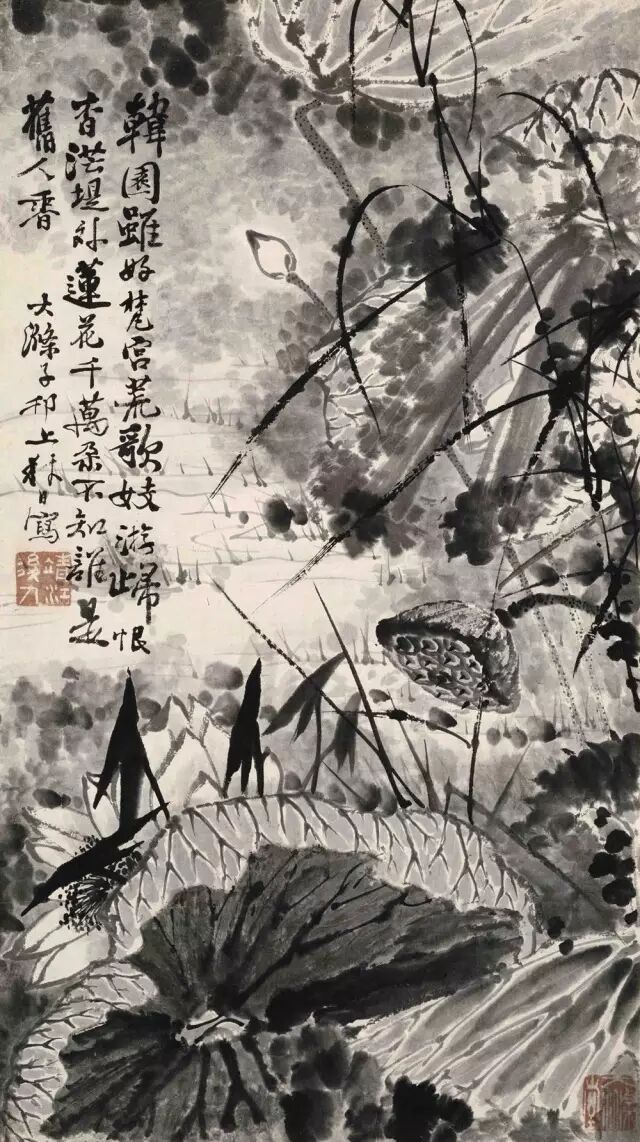 韓園雖好梵宮荒歌妓游歸恨
杳茫堤外蓮花千萬朵不知誰是
舊人香
大滌子邗上日寫
靖江後人